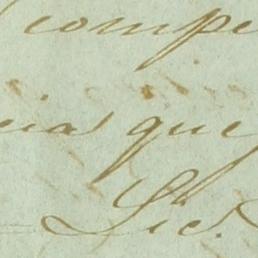 compe
cias que
Lic.